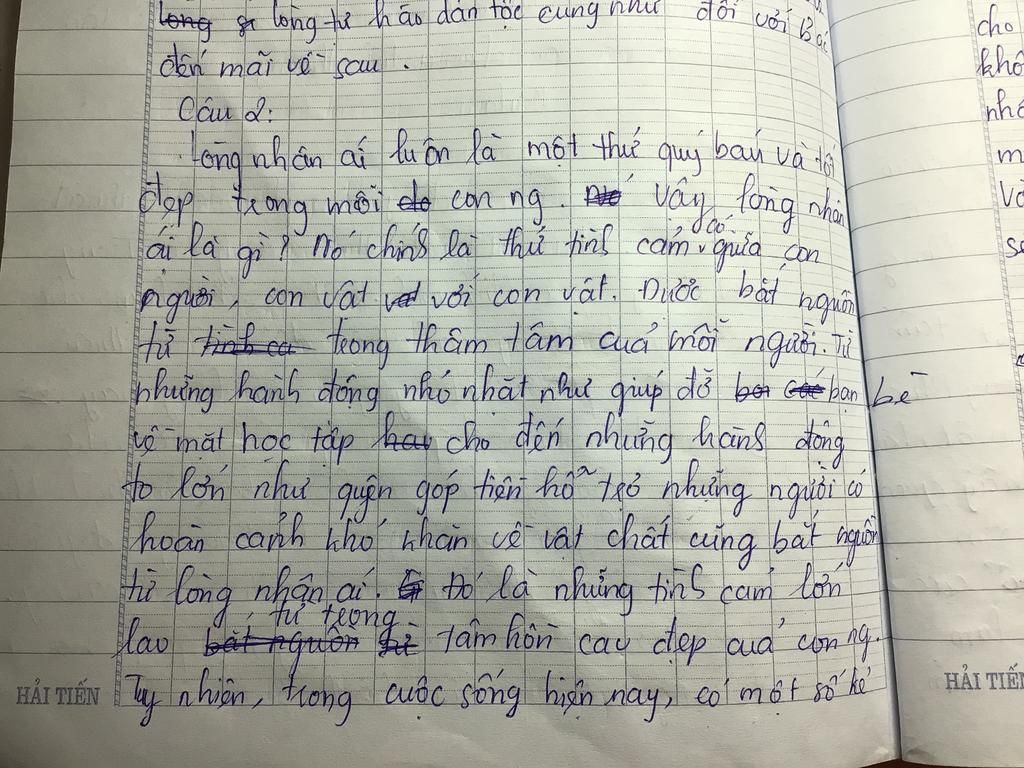 long tự hào dân tộc cũng như đối với Bác
đến mãi về sau.
Câu 2:
Lòng nhân ái luôn là một thứ quý báu và tốt
đẹp trong mỗi con ng. Vậy lòng nhân
ái là gì? Nó chính là thứ tình cảm có giữa con
người, con vật với con vật. Được bắt nguồn
từ trong thâm tâm của mỗi người. Từ
những hành động nhỏ nhặt như giúp đỡ bạn bè
về mặt học tập cho đến những hành động
to lớn như quyên góp tiền hỗ trợ những người có
hoàn cảnh khó khăn về vật chất cũng bắt nguồn
từ lòng nhân ái. Đó là những tình cảm lớn
lao từ trong tâm hồn cao đẹp của con ng.
Tuy nhiên, trong cuộc sống hiện nay, có một số kẻ
HẢI TIẾN
cho
khó
HẢI TIẾN